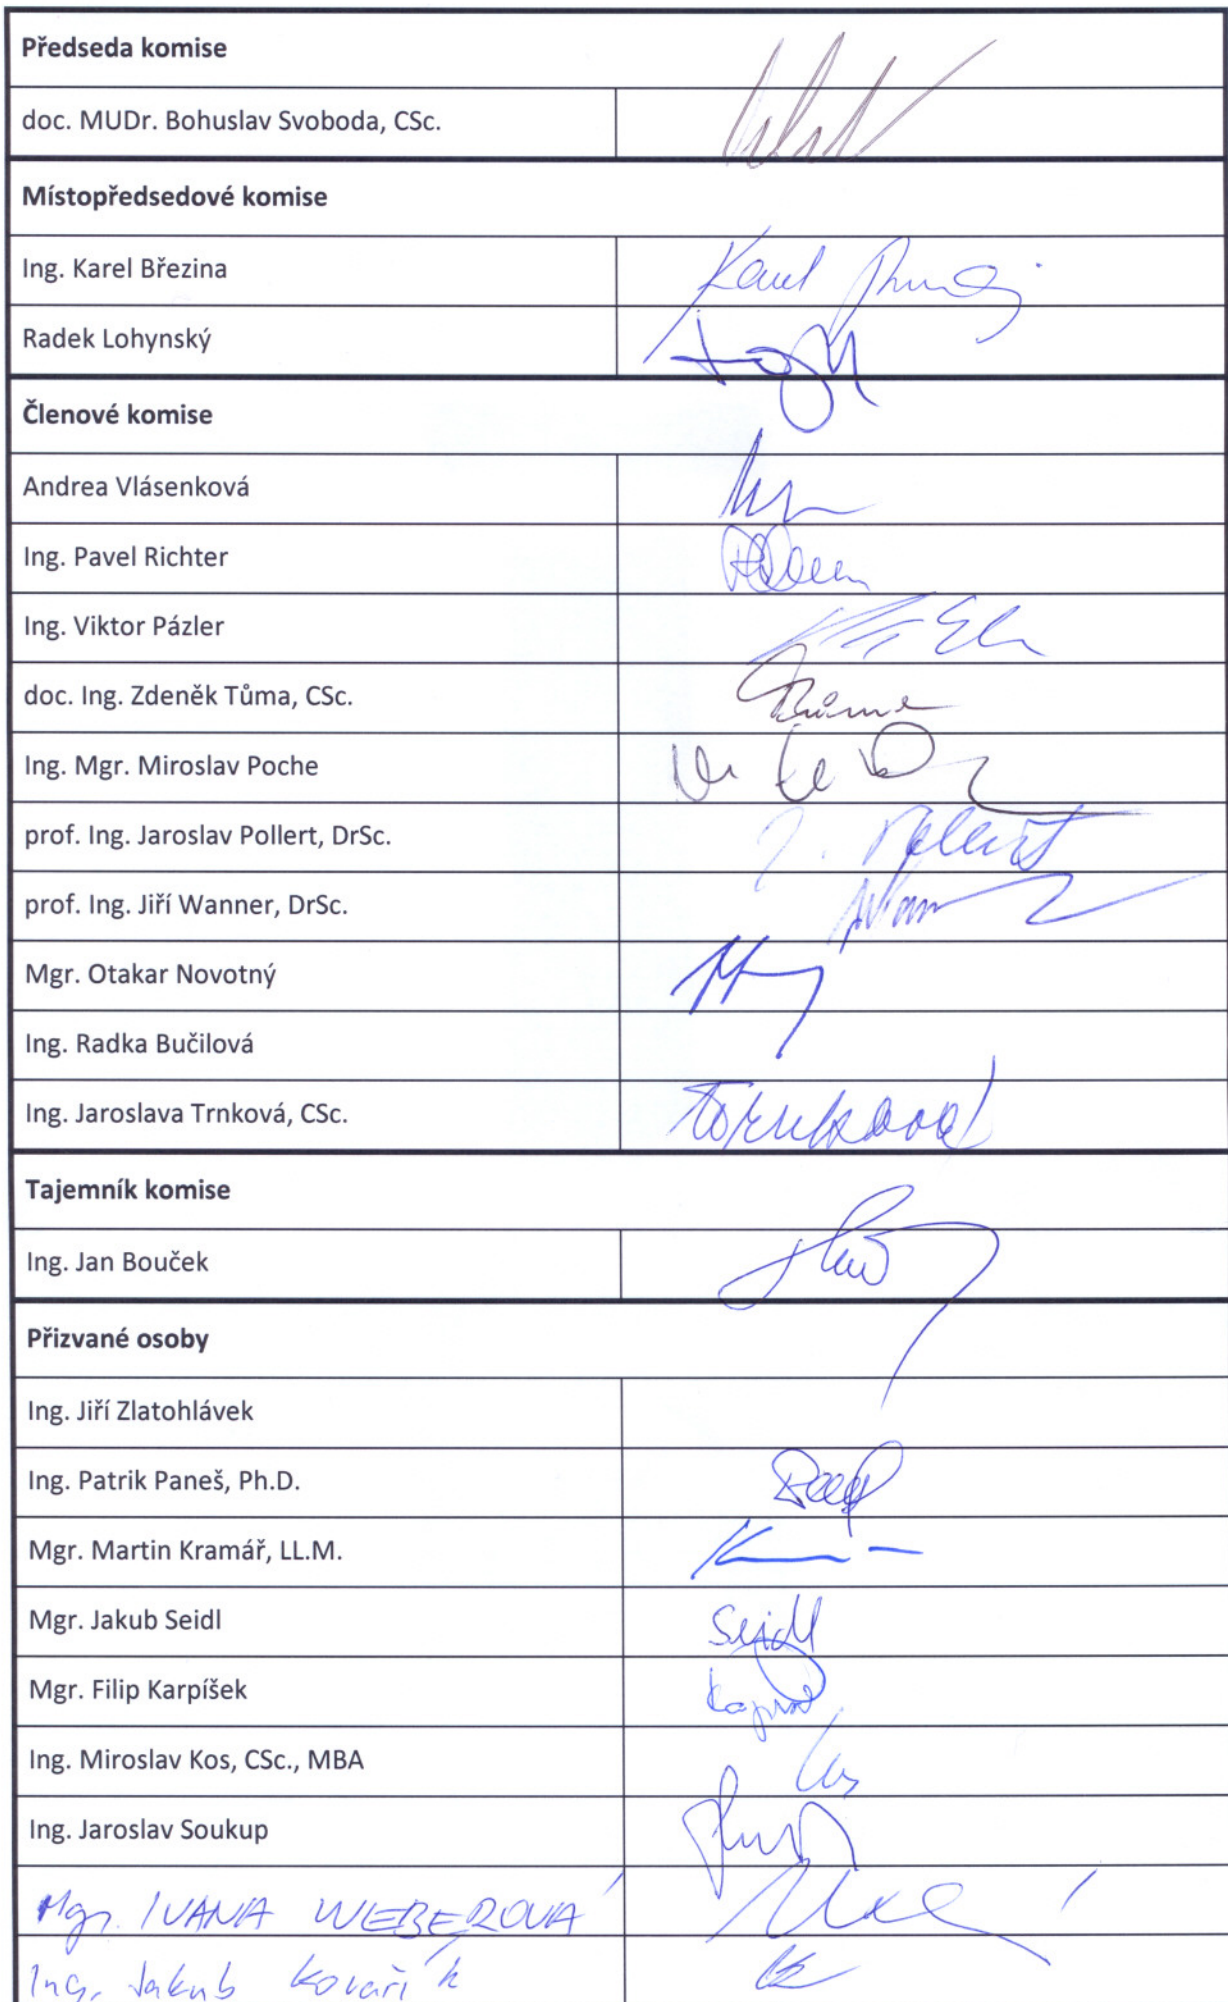 Předseda komise
doc. MUDr. Bohuslav Svoboda, CSc.
Místopředsedové komise
Ing. Karel Březina
Karel
Radek Lohynský
Členové komise
Andrea Vlásenková
Ing. Pavel Richter
Ing. Viktor Pázler
doc. Ing. Zdeněk Tůma, CSc.
Ing. Mgr. Miroslav Poche
prof. Ing. Jaroslav Pollert, DrSc.
J. Pollert
prof. Ing. Jiří Wanner, DrSc.
Mgr. Otakar Novotný
Ing. Radka Bučilová
Ing. Jaroslava Trnková, CSc.
Tajemník komise
Ing. Jan Bouček
Přizvané osoby
Ing. Jiří Zlatohlávek
Ing. Patrik Paneš, Ph.D.
Mgr. Martin Kramář, LL.M.
Mgr. Jakub Seidl
Seidl
Mgr. Filip Karpíšek
Ing. Miroslav Kos, CSc., MBA
Kos
Ing. Jaroslav Soukup
Mgr. IVANA WEBEROVÁ
Ing. Jakub Kovařík